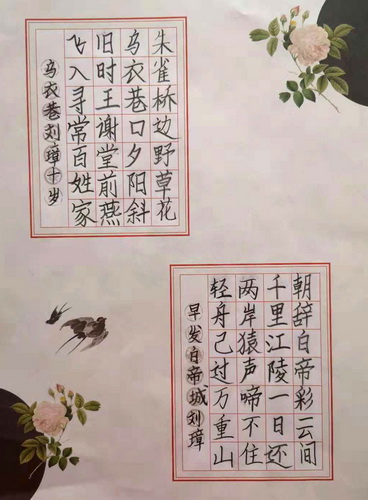 朱雀桥边野草花
乌衣巷口夕阳斜
旧时王谢堂前燕
飞入寻常百姓家
乌衣巷刘璋十岁
朝辞白帝彩云间
千里江陵一日还
两岸猿声啼不住
轻舟己过万重山
早发白帝城刘璋